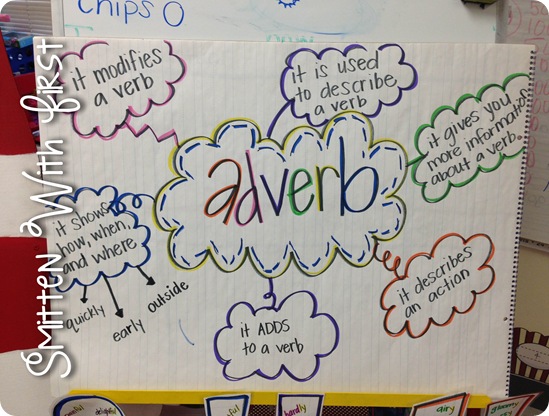 Chips 0
it modifies
a verb
it is used
to describe
a verb
it gives you
more information
about a verb.
adverb
it shows
how, when,
and where
quickly
early
outside
it ADDS
to a verb
it describes
an action
Smitten With First
hardly
airy